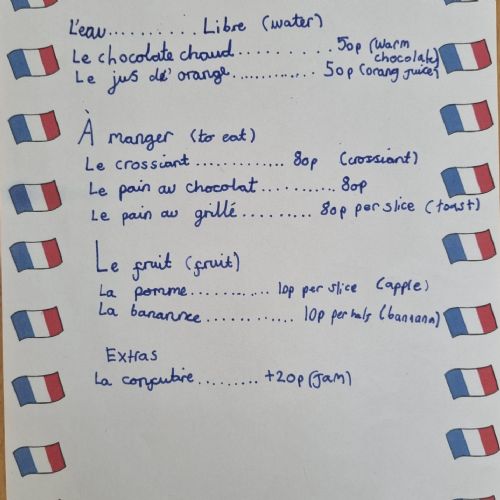 L'eau.......... Libre (water)
Le chocolate chaud.......... 50p (warm chocolate)
Le jus de' orange............. 50p (orang juice)
À manger (to eat)
Le crossiant............. 80p (crossiant)
Le pain au chocolat........... 80p
Le pain au grillé.......... 80p per slice (toast)
Le fruit (fruit)
La pomme............ 10p per slice (apple)
La banannce............. 10p per half (bannana)
Extras
La confubire......... +20p (Jam)